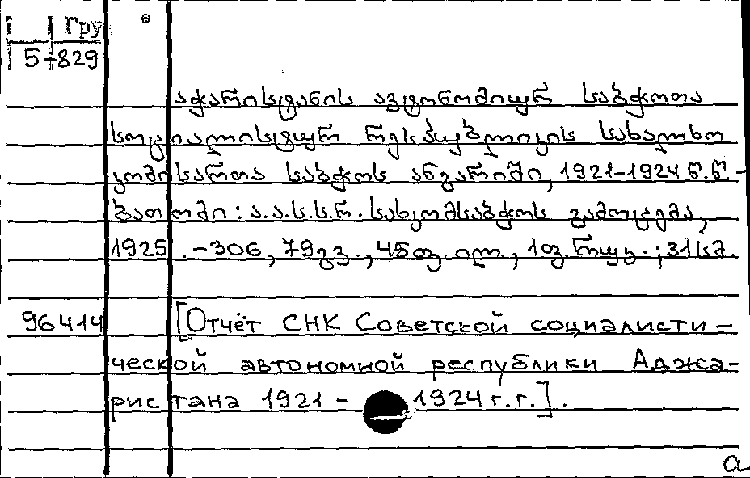 Гру
5-829
აჭარისტანის ავტონომიურ საბჭოთა
სოციალისტურ რესპუბლიკის სახალხო
კომისართა საბჭოს ანგარიში, 1921-1924 წ.წ -
ბათომი: ა.ა.ს.ს.რ. სახკომსაბჭოს გამოცემა,
1925. -306, 79 გვ., 45 ფ. ილ., 1 ; 31 სმ.
96414 [Отчёт СНК Советской социалисти-
ческой автономной республики Аджа-
ристана 1921 - 1924 г.г.].
а